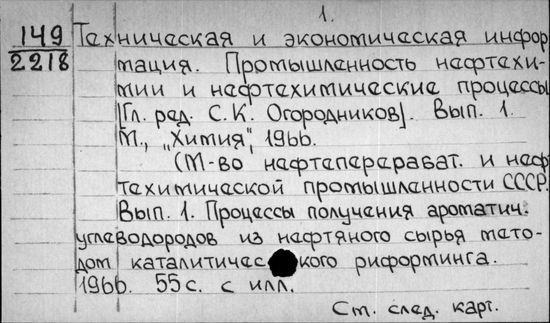 1.
149
2218
Техническая и экономическая инфор
мация. Промышленность нефтехи-
мии и нефтехимические процессы
[Гл. ред. С. К. Огородников]. Вып. 1.
М., „Химия", 1966.
(М-во нефтеперерабат. и неф
техимической промышленности СССР.
Вып. 1. Процессы получения ароматич.
углеводородов из нефтяного сырья мето-
дом каталитичес кого риформинга.
1966. 55 с. с илл.
См. след. карт.